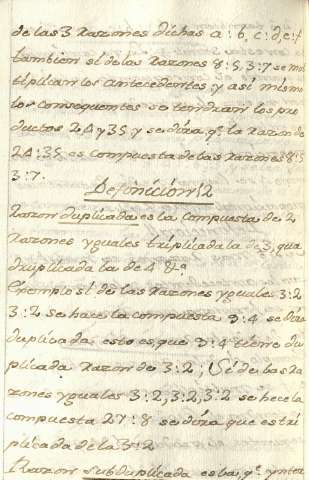 de las 3 razones dichas a:b, c:d, e:f
tambien si de las razones 8:5, 3:7 se mul
tiplican los antecedentes, y asi mismo
los consequentes se tendran los pro
ductos 24 y 35 y se dira, q.e la razon de
24:35 es compuesta de las razones 8:5
3:7.
Definicion 12
Razon duplicada es la compuesta de 2
razones yguales triplicada la de 3, qua
druplicada la de 4 &a
Exemplo si de las razones yguales 3:2
3:2 se hace la compuesta 9:4 se dira
duplicada esto es que 9:4 tiene du
plicada razon de 3:2; Si de las ra
zones yguales 3:2, 3:2, 3:2 se hece la
compuesta 27:8 se dira que es tri
plicada de la 3:2
Razon subduplicada es la q.e